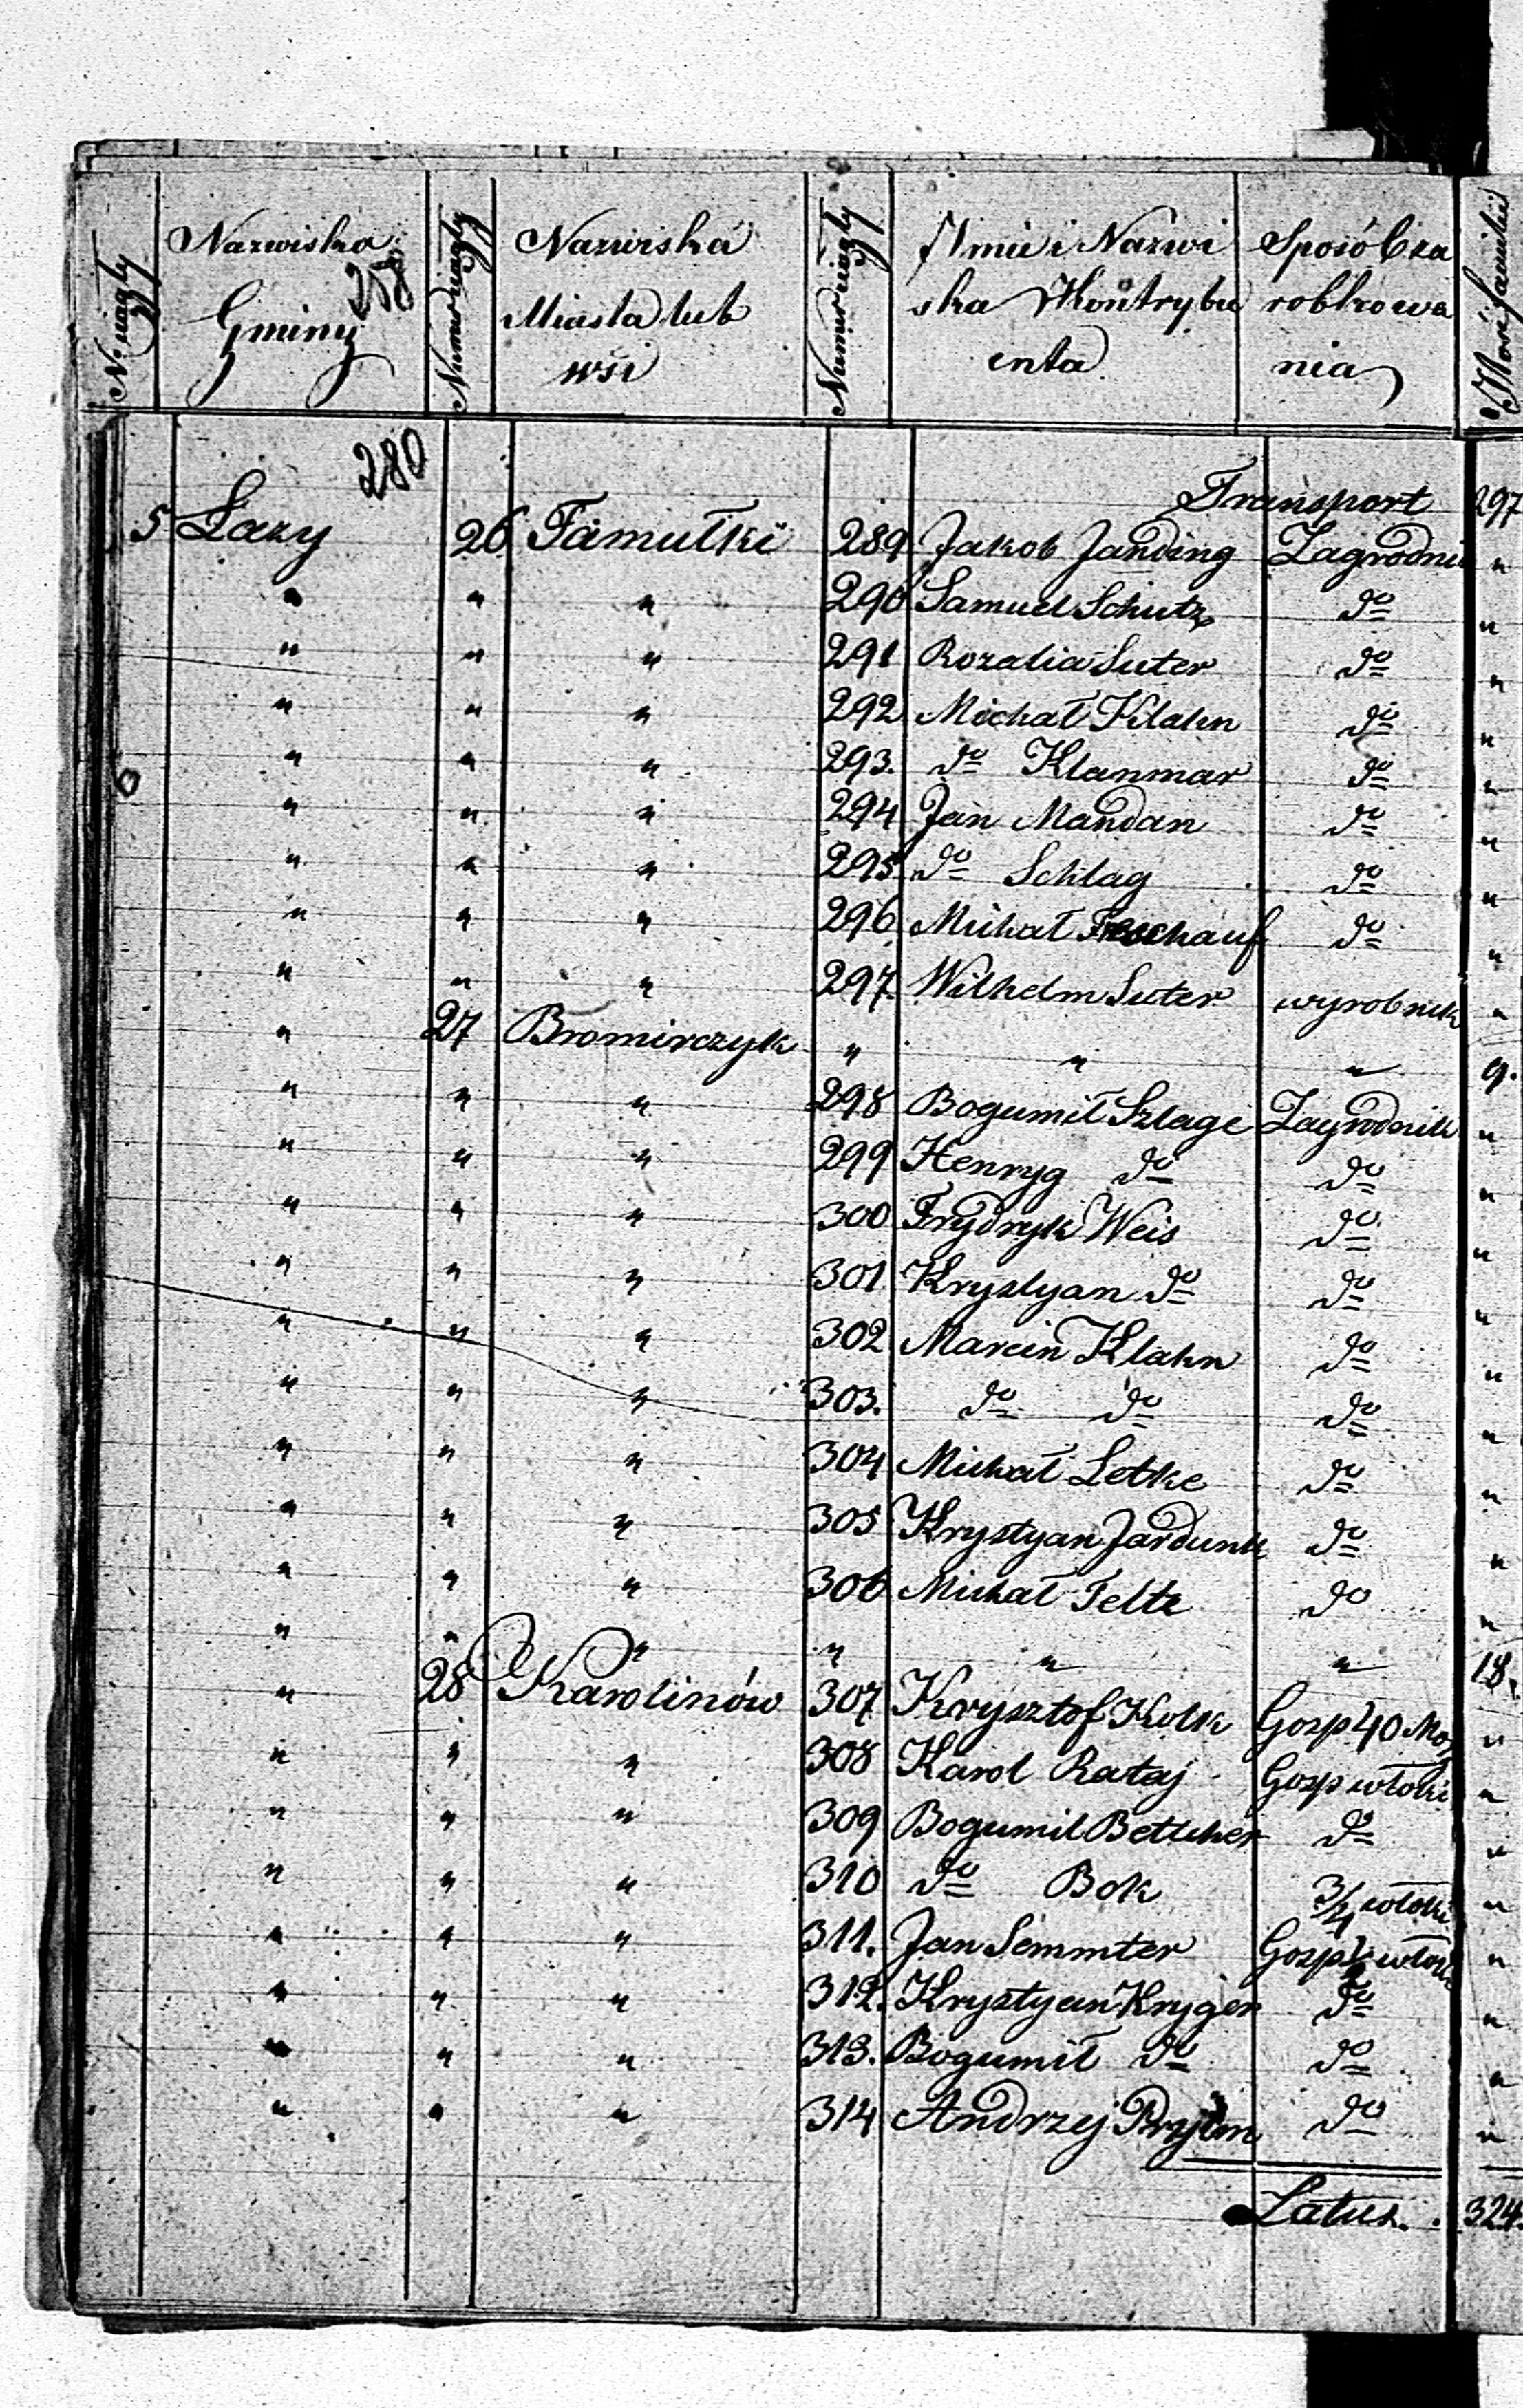 Nazwisko Gminy
Nazwiska Miasta lub wsi
Imie i Nazwiska Kontrybuenta
Sposób zarobkowania
258
280
Transport 297
5 Łazy 26 Famułki 289 Jakob Janding Zagrodni "
" " " 290 Samuel Schutz do "
" " " 291 Rozalia Suter do "
" " " 292 Michał Klahn do "
" " " 293. do Klanmar do "
" " " 294 Jan Mandan do "
" " " 295 do Schlag do "
" " " 296 Michał do "
" " " 297. Wilhelm Suter wyrobnik "
" 27 Bromirczyk " " " 9.
" " " 298 Bogumił Szlage Zagrodnik "
" " " 299 Henryg do do "
" " " 300 Frydryk Weis do "
" " " 301 Krystyan do do "
" " " 302 Marcin Klahn do "
" " " 303. do do do "
" " " 304 Michał Letke do "
" " " 305 Krystyan Jardunk do "
" " " 306 Michał Feltz do "
" " " " " " 18.
" 28 Karolinów 307 Krysztof Kolk Gosp 40 Mo "
" " " 308 Karol Rataj Gosp włóki "
" " " 309 Bogumil Bettcher do "
" " " 310 do Bok 3/4 włóki "
" " " 311. Jan Semmter Gosp włók "
" " " 312. Krystyan Kryger do "
" " " 313. Bogumił do do "
" " " 314 Andrzej do "
Latus. 324.